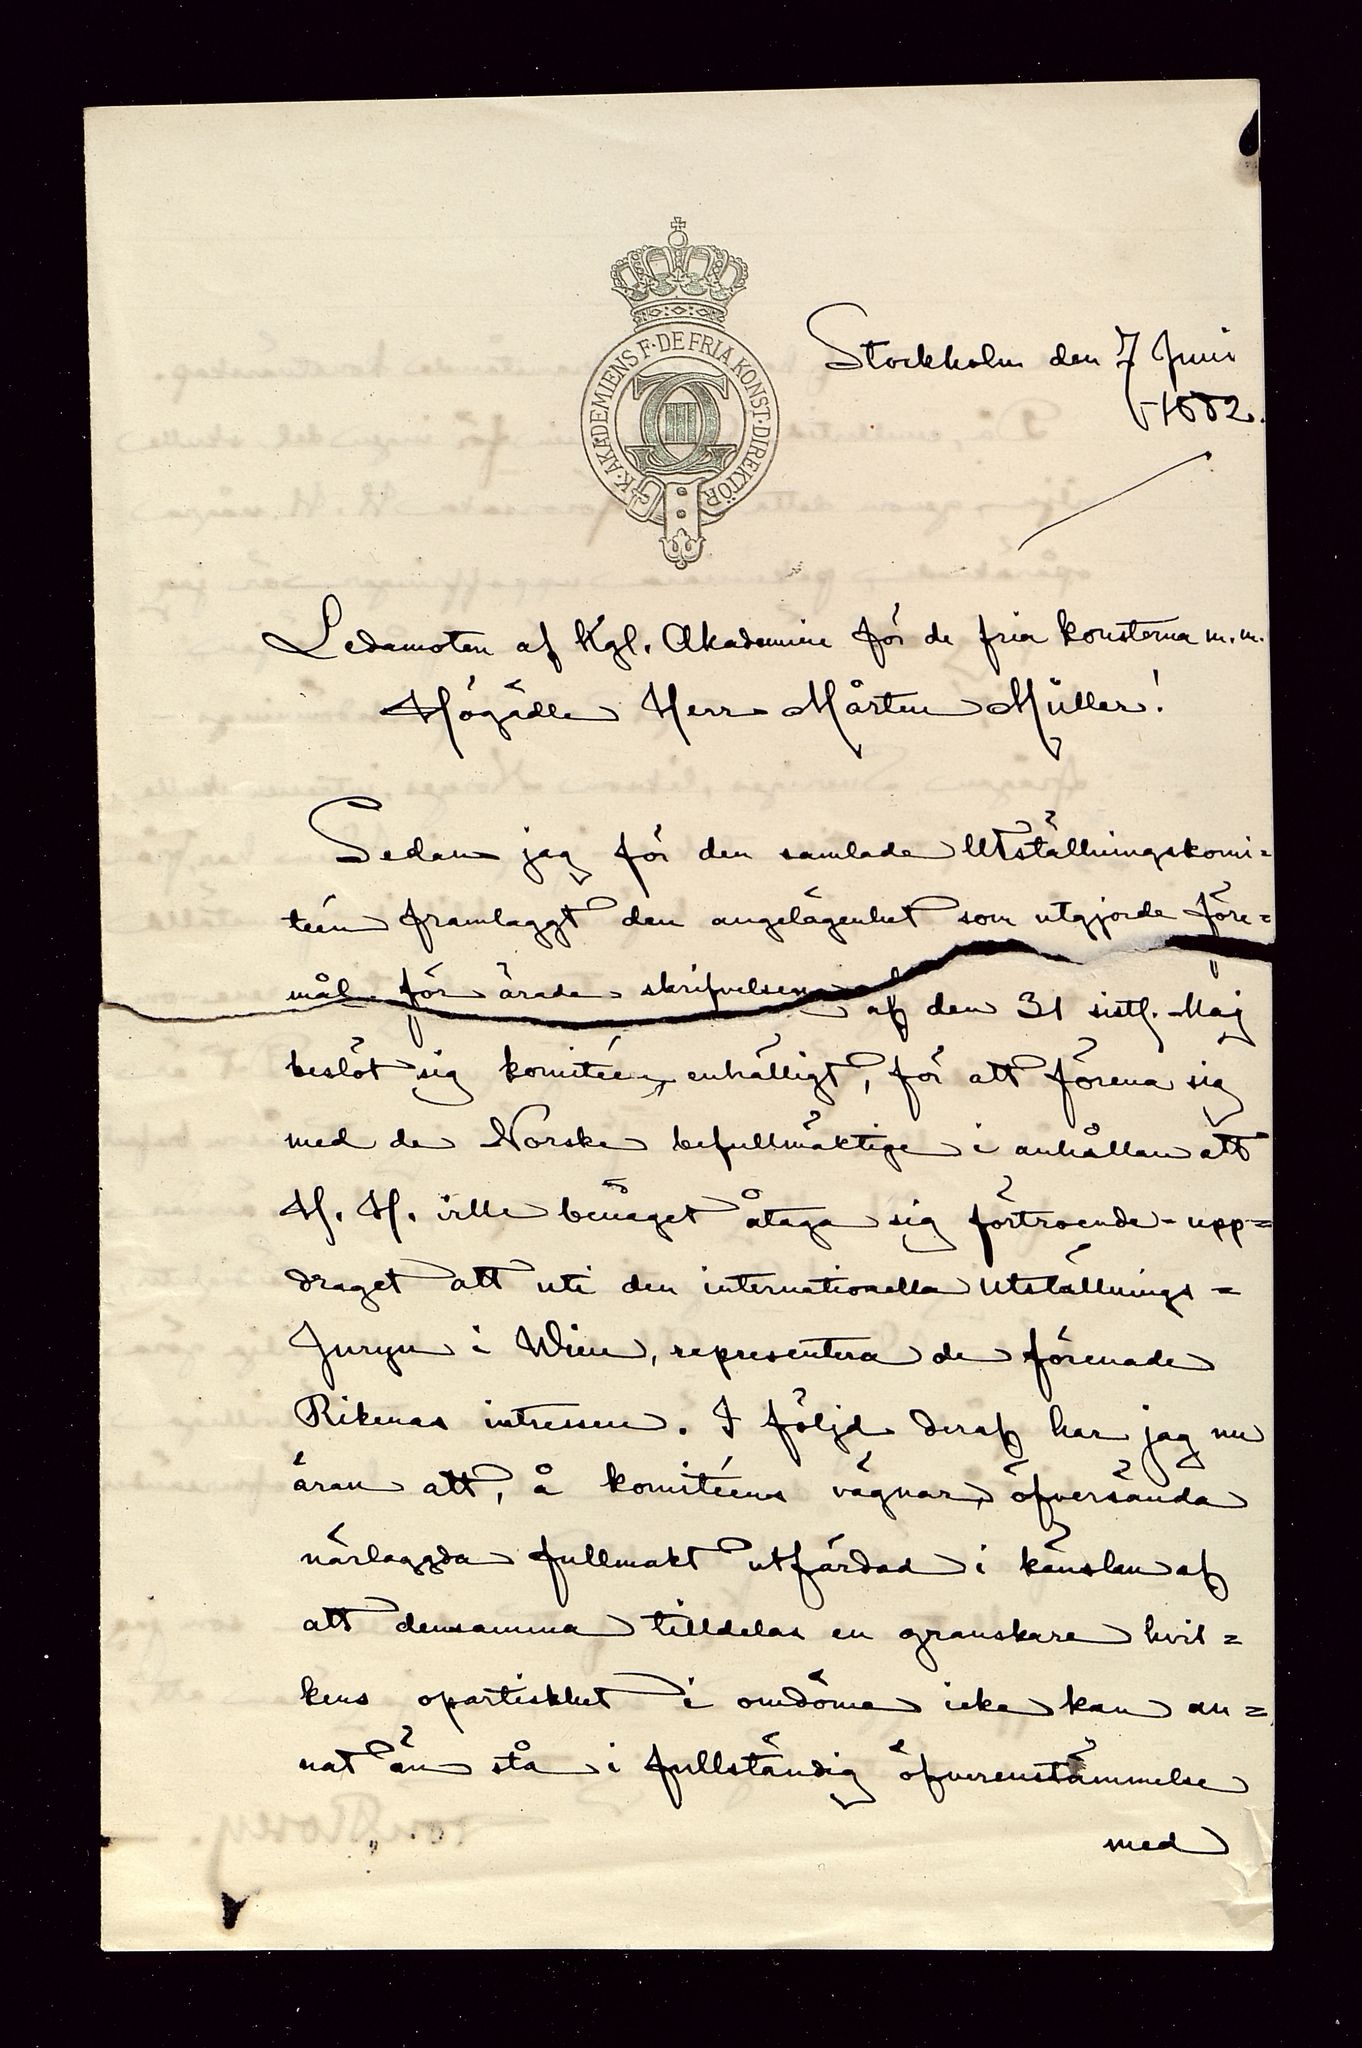 K. AKADEMIENS F. DE FRIA KONST. DIREKTÖR
Stockholm den 7 Juni
1882.
Ledamoten af Kgl. Akademien för de fria konsterna m.m.
Högädle Herr Mårten Müller!
Sedan jag för den samlade Utställningskomi=
téen framlaggt den angelägenhet som utgjorde före=
mål för ärade skrifvelsen af den 31 sistl. Maj
beslöt sig komitéen, enhälligt, för att förena sig
med de Norske befullmäktige i anhållan att
H. H. ville benäget åtaga sig förtroende-upp=
draget att uti den internationella Utställnings=
Juryn i Wien, representera de förenade
Rikenas intressen. I följd deraf har jag nu
äran att, å komitéens vägnar, öfversända
närlaggda fullmakt utfärdad i känslan af
att densamma tilldelas en granskare hvil=
kens opartiskhet i omdöme icke kan an=
nat än stå i fullständig öfverenstämmelse
med